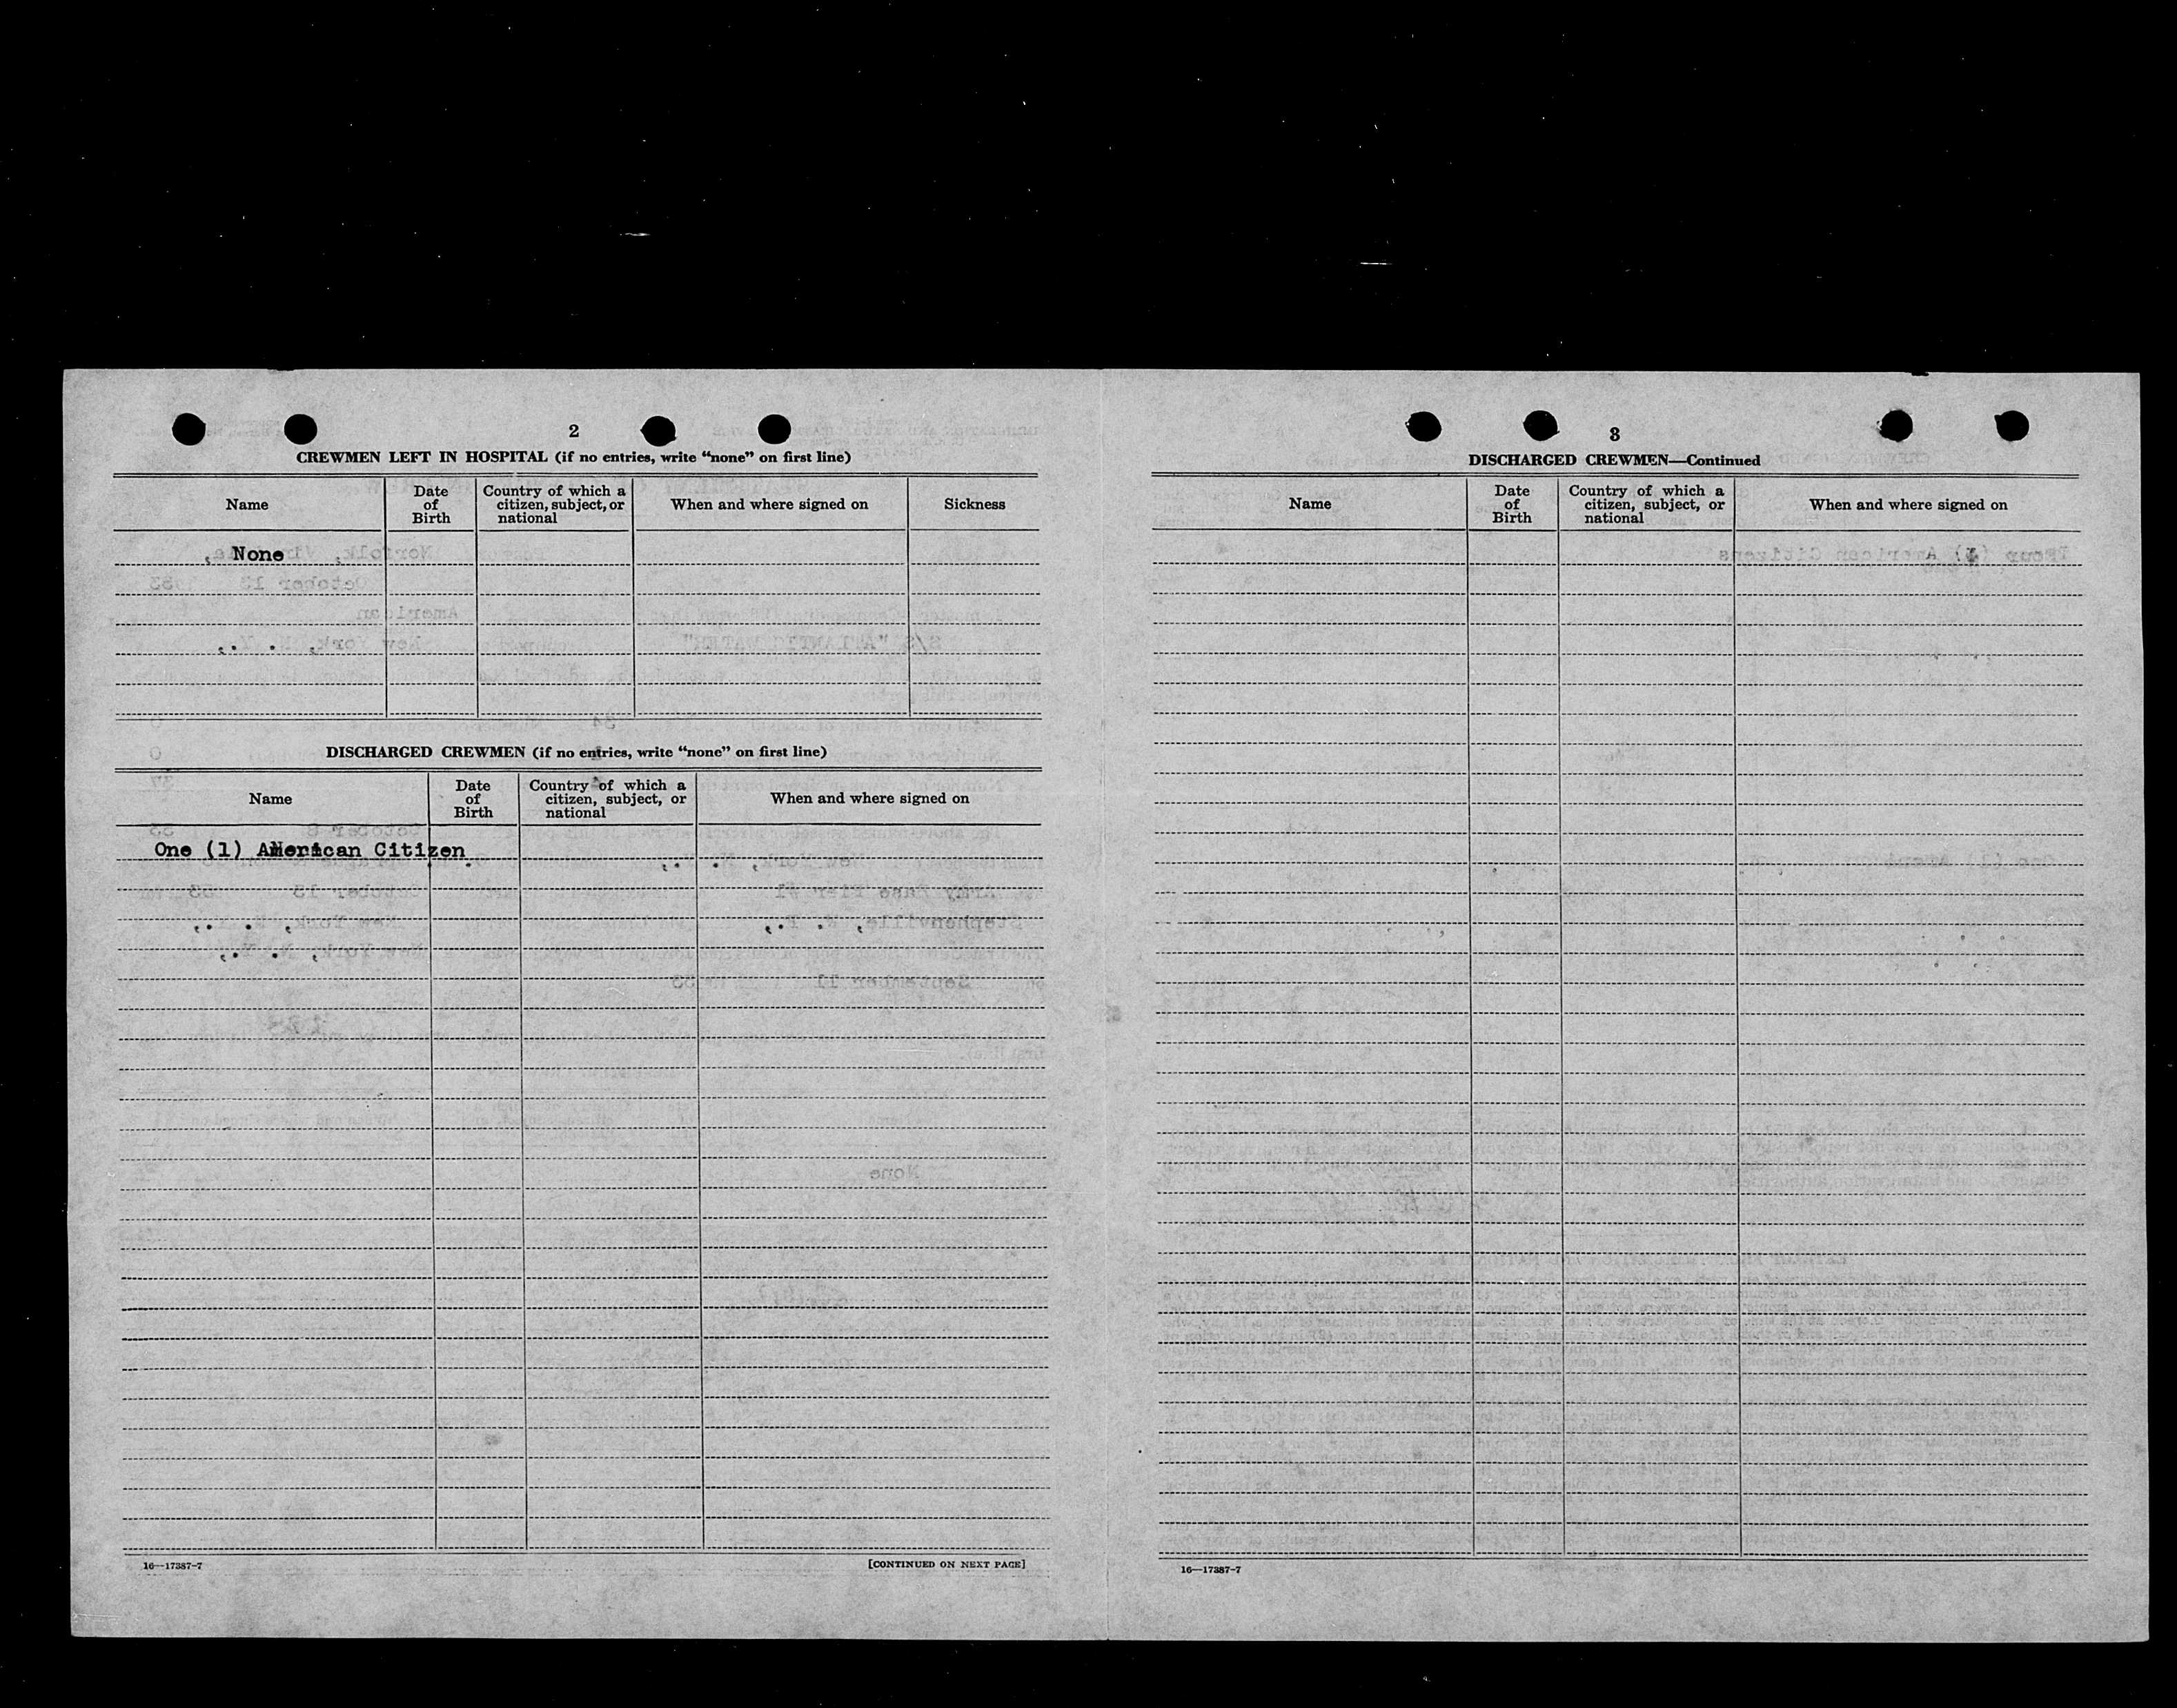 2
CREWMEN LEFT IN HOSPITAL (if no entries, write “none” on first line)
Name
Date of Birth
Country of which a citizen, subject, or national
When and where signed on
Sickness
None
DISCHARGED CREWMEN (if no entries, write “none” on first line)
Name
Date of Birth
Country of which a citizen, subject, or national
When and where signed on
One (1) American Citizen
16—17387-7
[CONTINUED ON NEXT PAGE]
3
DISCHARGED CREWMEN—Continued
Name
Date of Birth
Country of which a citizen, subject, or national
When and where signed on
16—17387-7